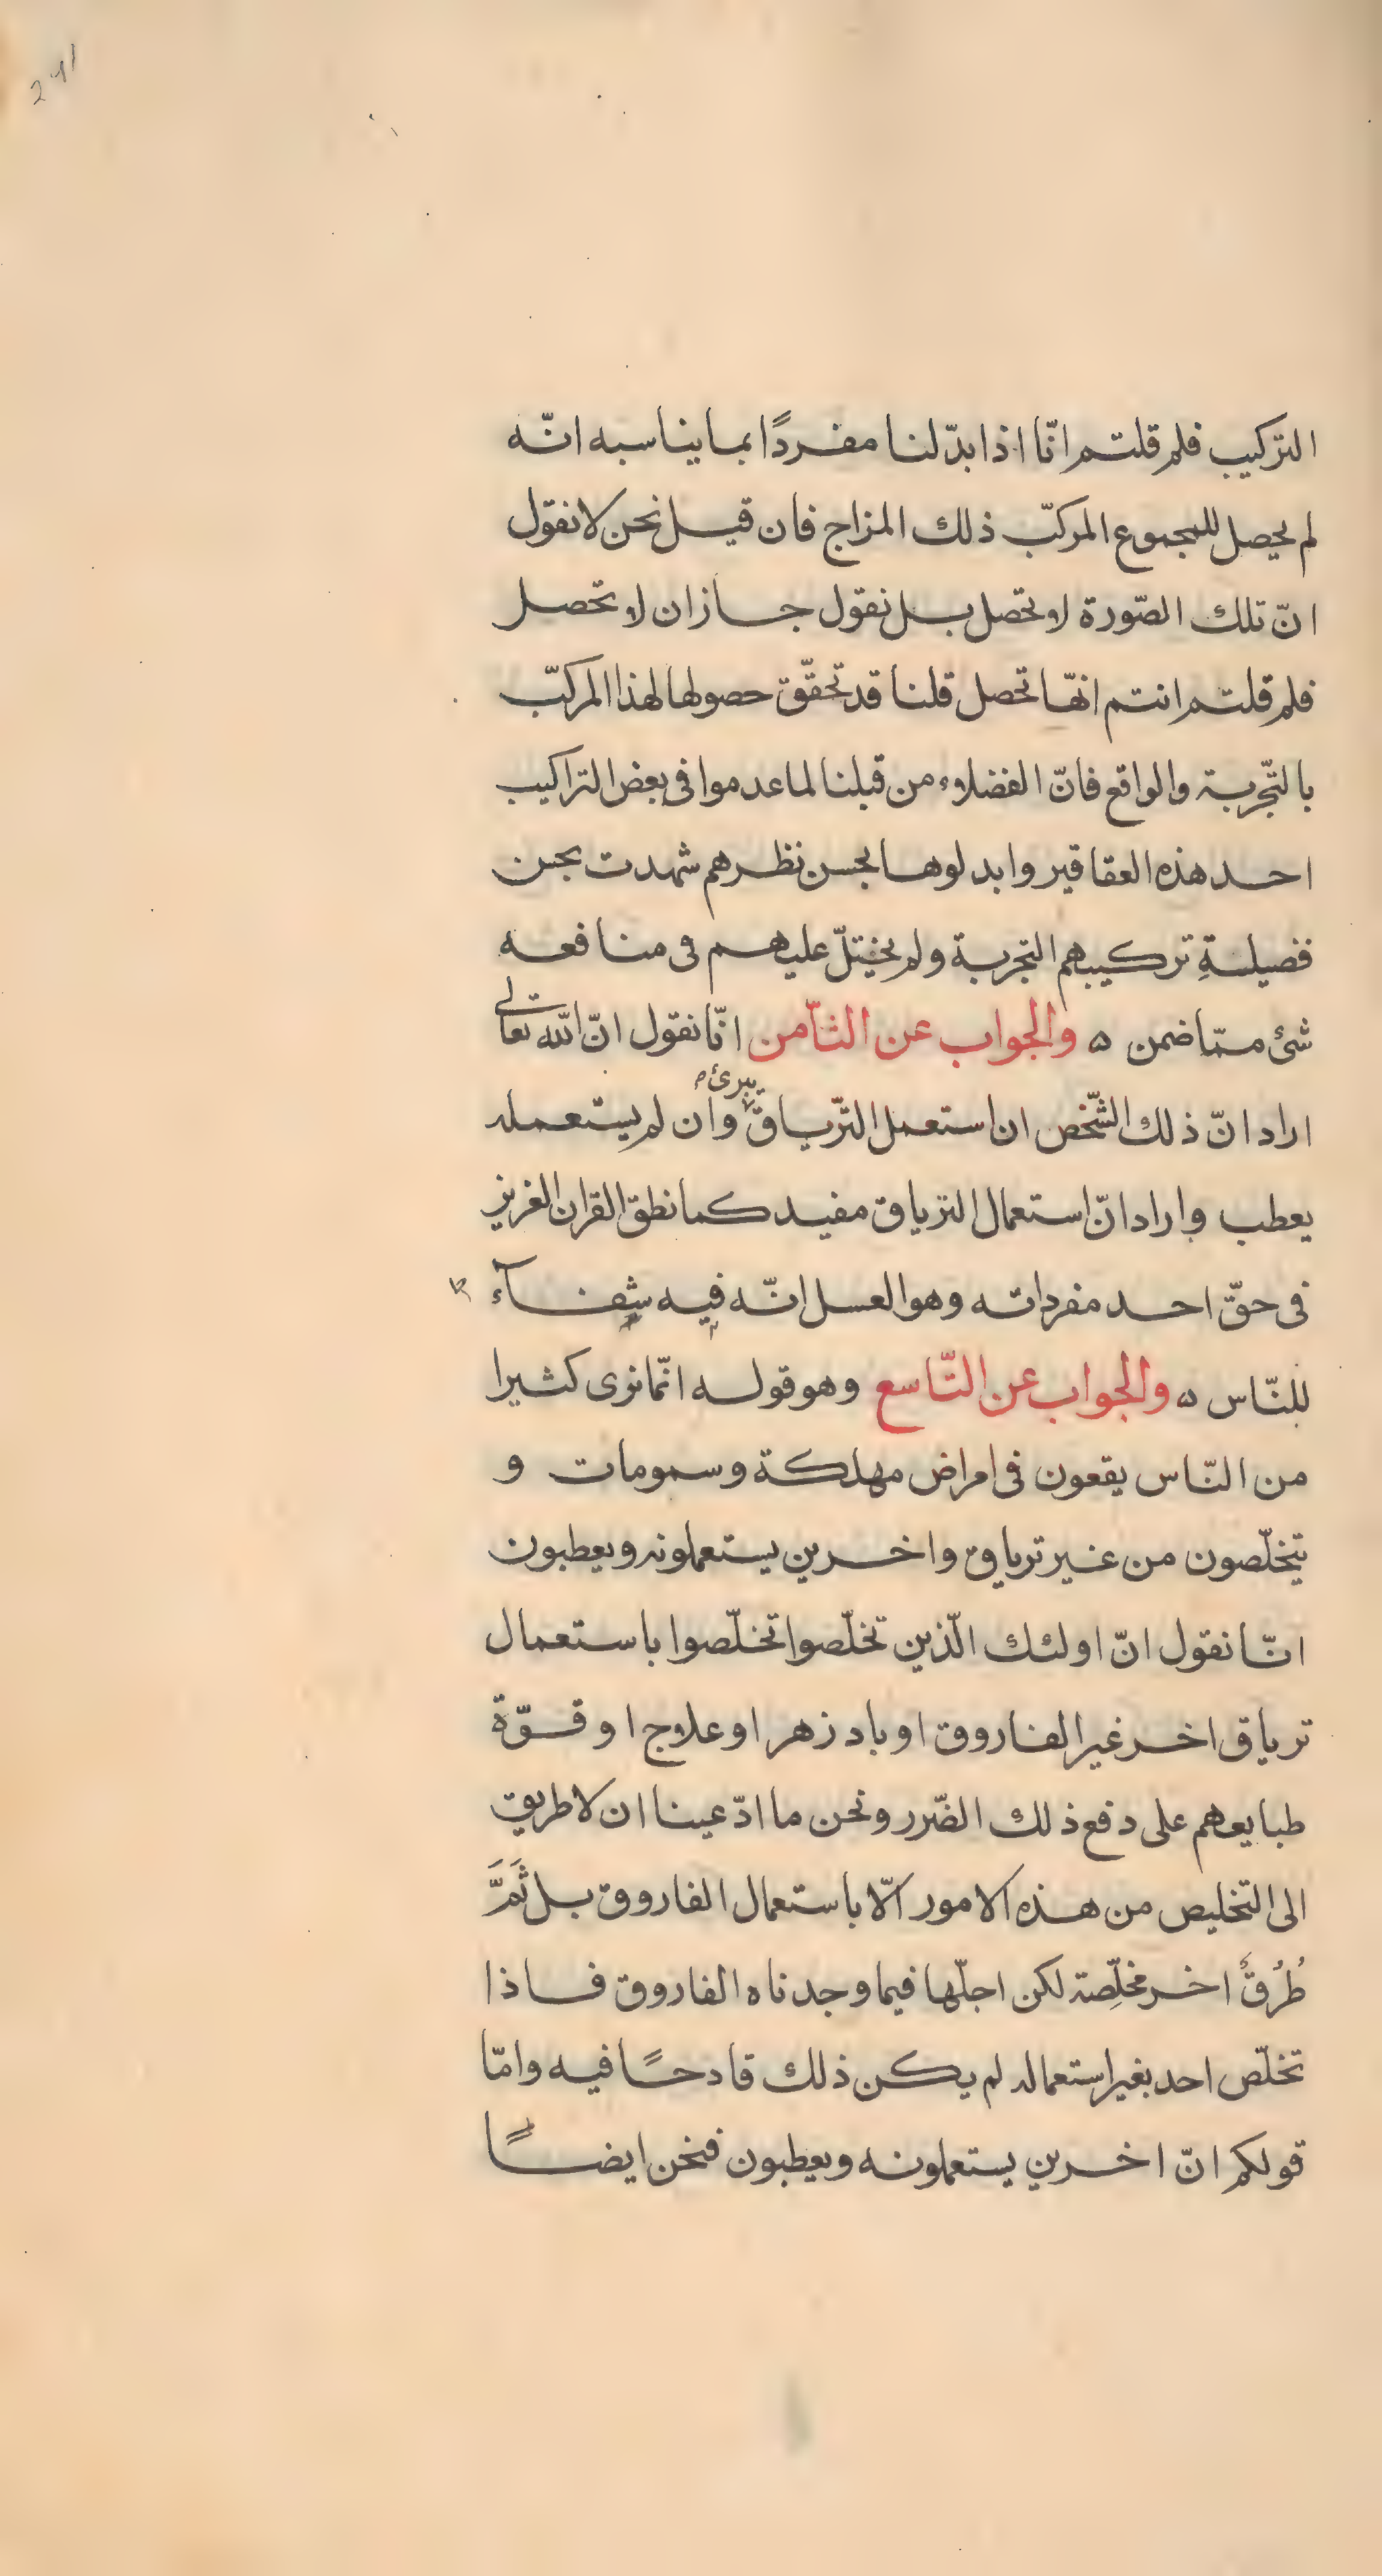 التركيب فلم قلتم انّا اذا بدّلنا مفردًا بما يناسبه انّه
لم يحصل للمجموع المركبّ ذلك المزاج فان قيل نحن لا نقول
انّ تلك الصّورة لا تحصل بل نقول جاز ان لا تحصل
فلم قلتم انتم انهّا تحصل قلنا قد تحقّق حصولها لهذا المركبّ
بالتّجربة والواقع فانّ الفضلاء من قبلنا لما عدموا فى بعض التراكيب
احد هذه العقاقير وابدلوها بحسن نظرهم شهدت بحسن
فضيلةِ تركيبهم التجربة ولم يختلّ عليهم فى منافعه
شئ ممّا ضمن ۵ والجواب عن الثّامن انّا نقول انّ الله تعالى
اراد انّ ذلك الشّخص ان استعمل التّرياق يبرئ وان لم يستعمله
يعطب واراد انّ استعمال الترياق مفيد كما نطق القران العزيز
فى حقّ احد مفرداته وهو العسل انّه فيه شفآء
للنّاس ۵ والجواب عن التّاسع وهو قوله انّما نرى كثيرا
من النّاس يقعون فى امراض مهلكة وسمومات و
يتخلّصون من غير ترياق واخرين يستعملونه ويعطبون
انّا نقول انّ اولئك الّذين تخلّصوا تخلّصوا باستعمال
ترياق اخر غير الفاروق او بادزهر او علاج او قوّة
طبايعهم على دفع ذلك الضّرر ونحن ما ادّعينا ان لا طريق
الى التخليص من هذه الامور الّا باستعمال الفاروق بل ثَمَّ
طُرُقٌ اخر مخلِّصة لكن اجلّها فيما وجدناه الفاروق فاذا
تخلّص احد بغير استعماله لم يكن ذلك قادحًا فيه وامّا
قولكم انّ اخرين يستعملونه ويعطبون فنحن ايضًا